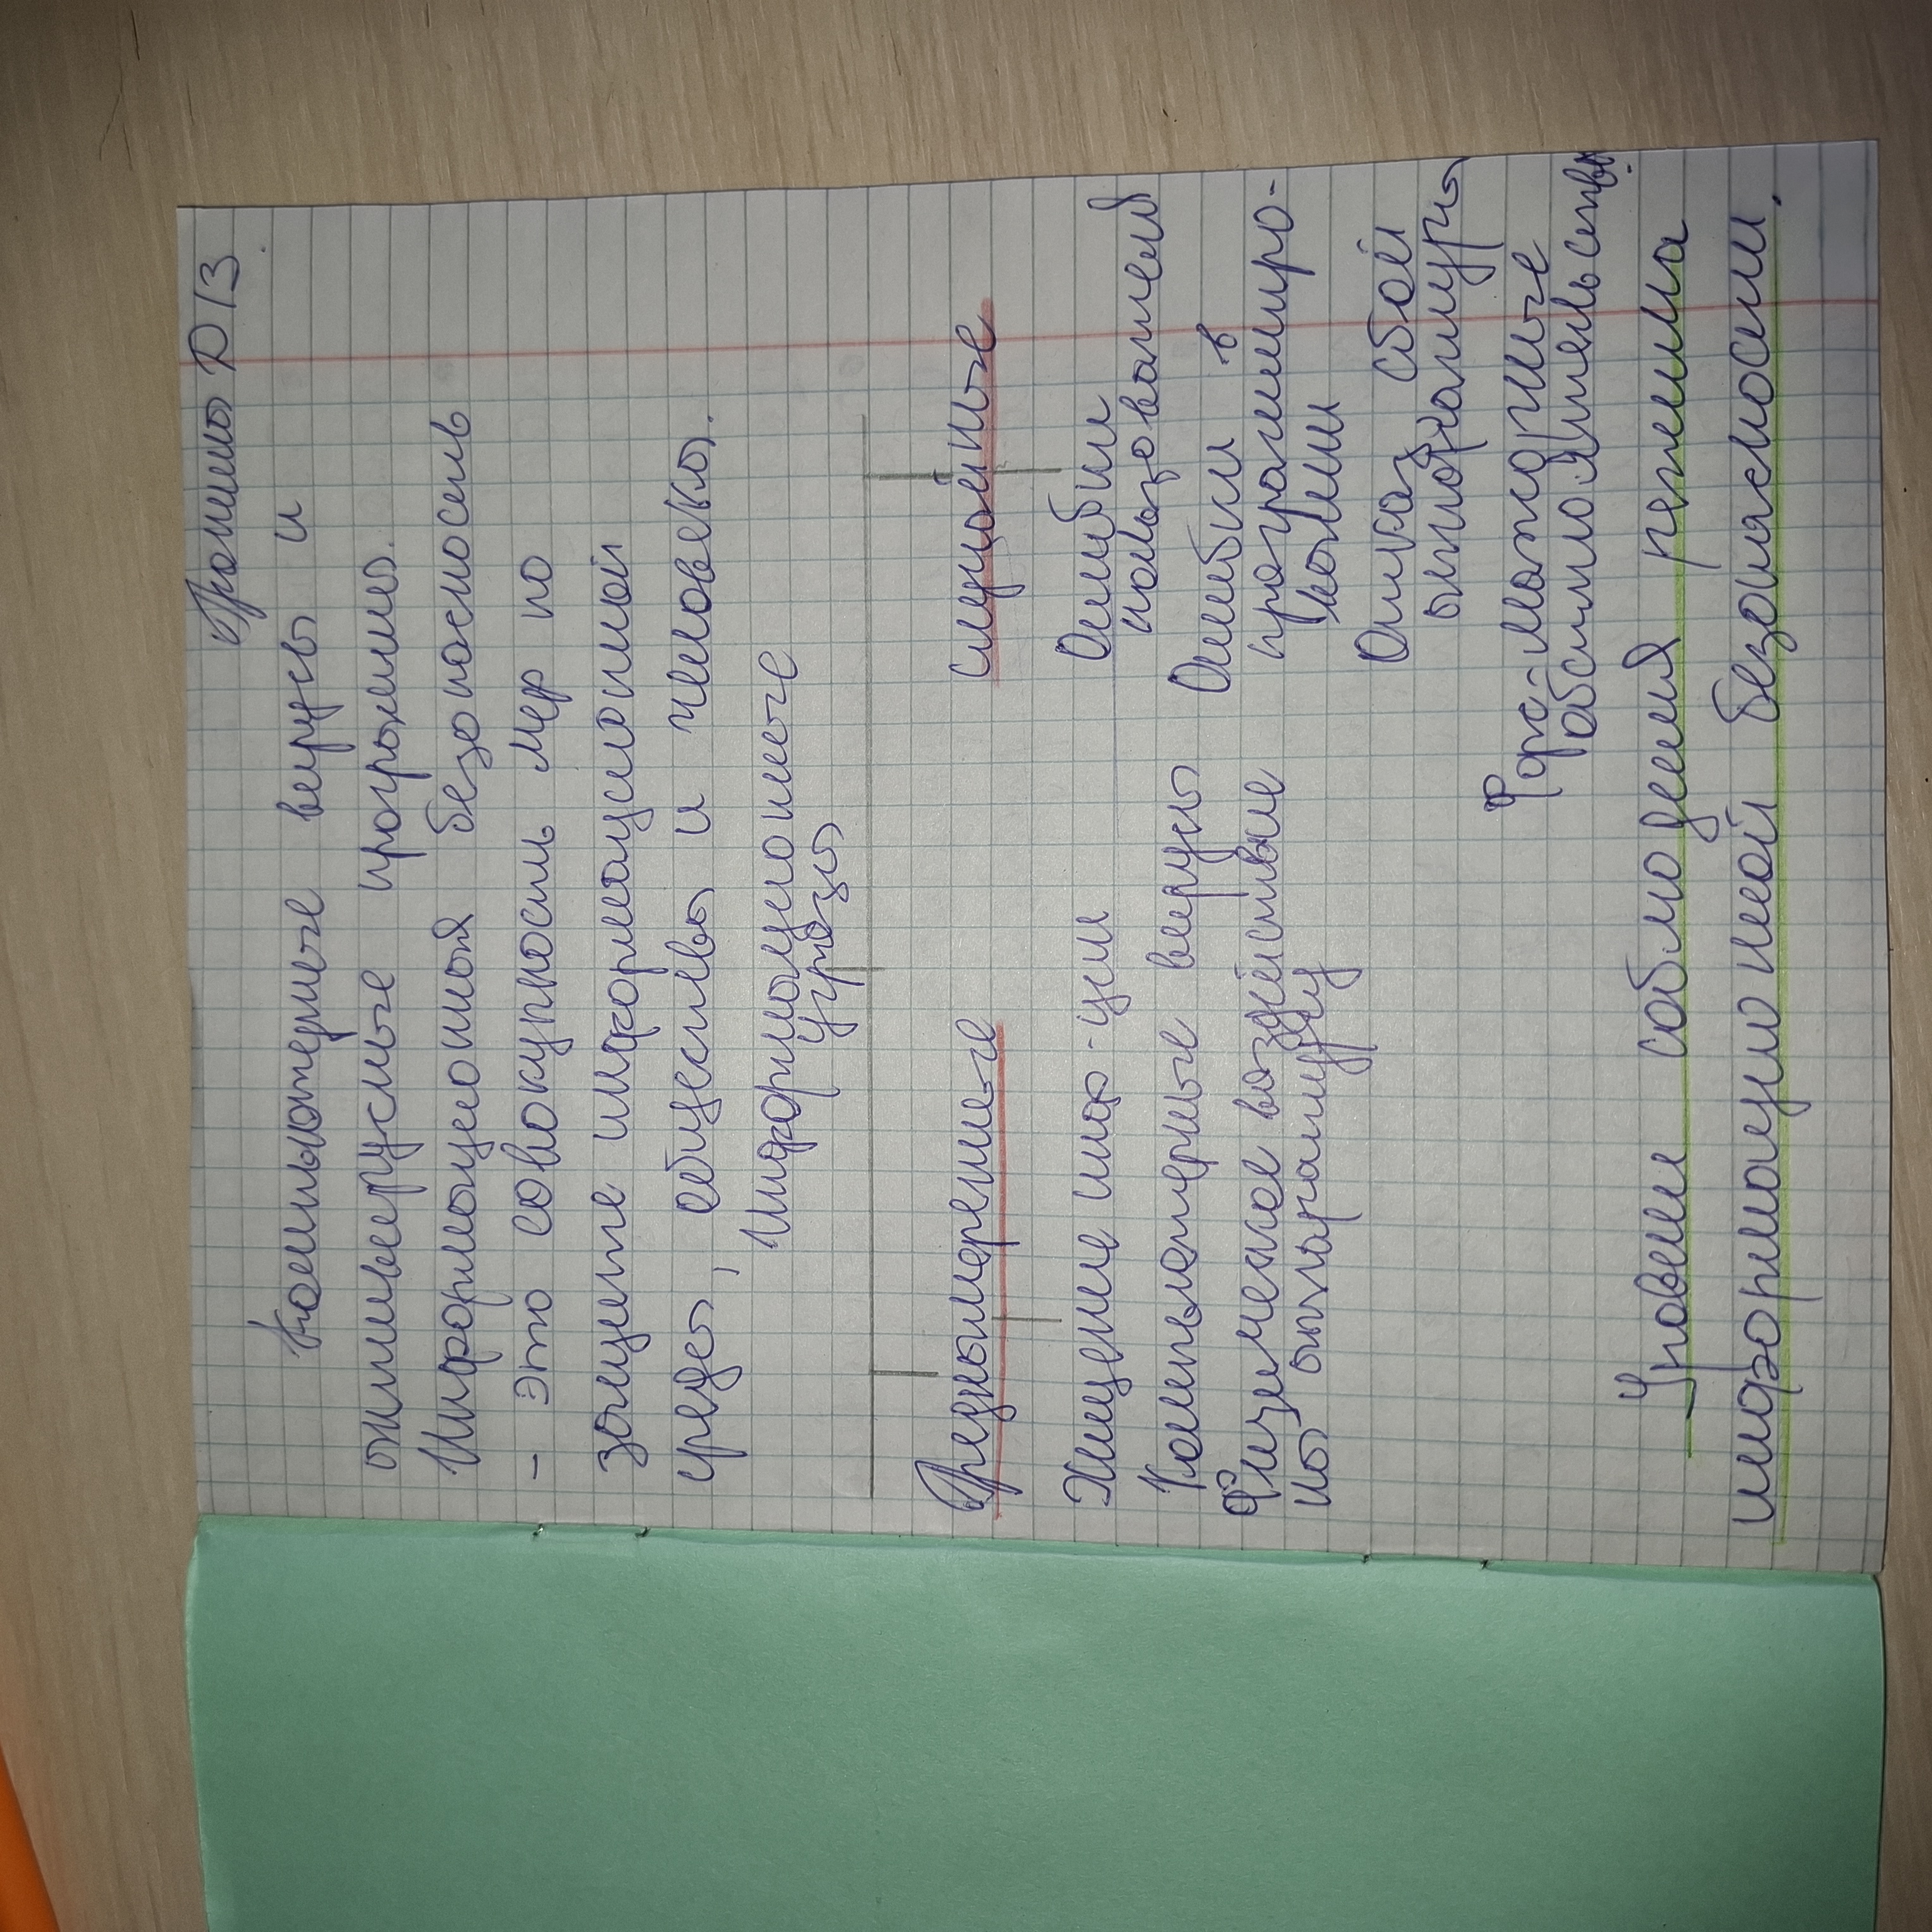 Д/З
Компьютерные вирусы и
антивирусные программы.
Информационая безопасность
- это совокупность мер по
защите информационной
среды, общества и человека.
Информационные
угрозы
Преднамеренные случайные
Хищение инф-ции Ошибки
пользователя
Компьютерные вирусы Ошибки в
программиро-
Физическое воздействие
на аппаратуру
Отказ, сбой
аппаратуры
Форс-мажорные
обстоятельства
Уровни соблюдения режима
информационной безопасности.